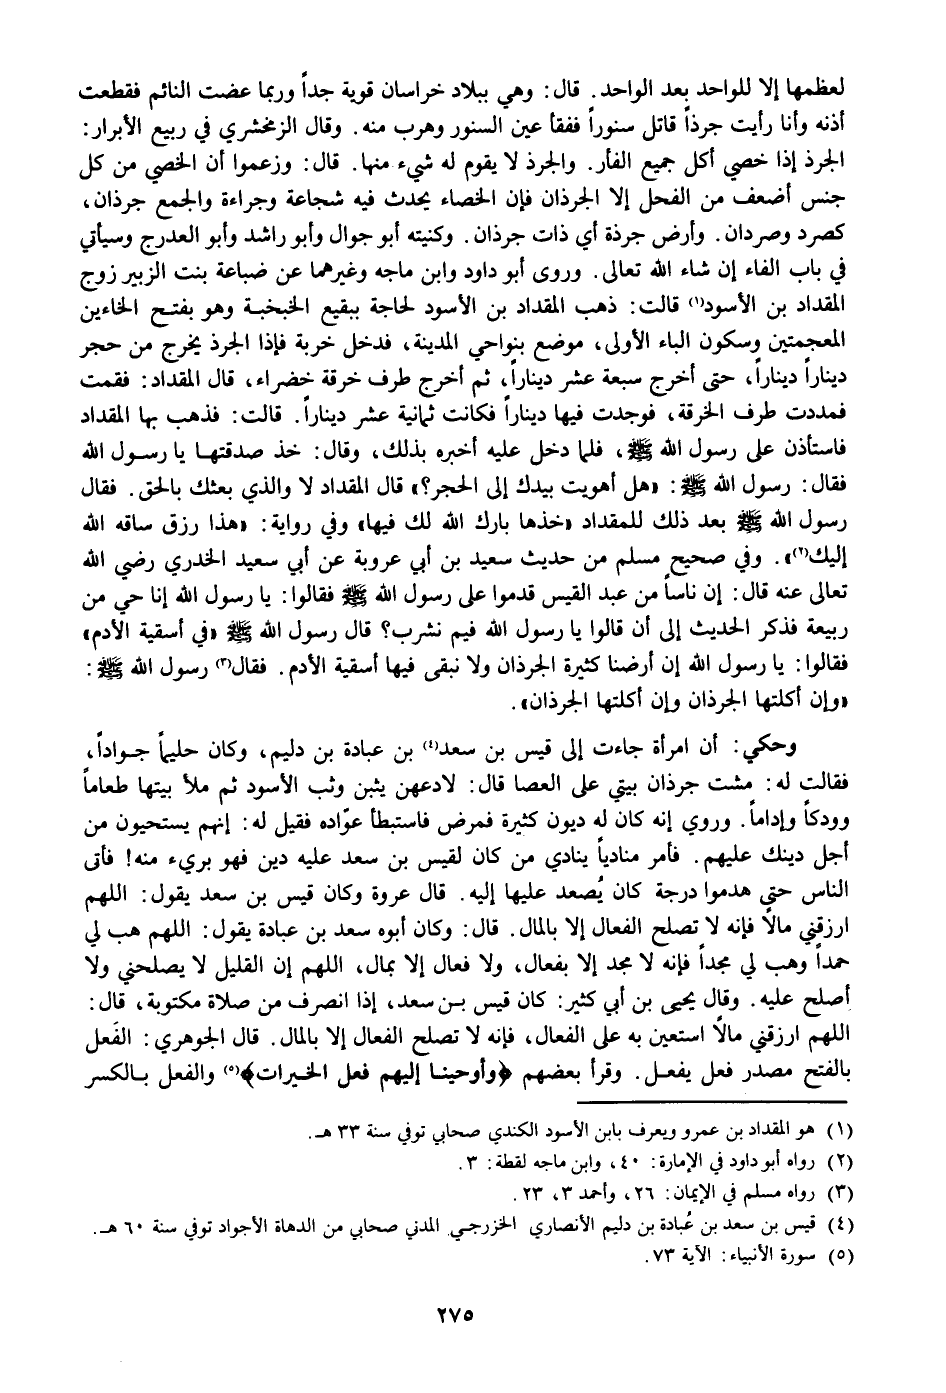 لعظمها إلا للواحد بعد الواحد. قال: وهي ببلاد خراسان قوية جداً وربما عضت النائم فقطعت
أذنه وأنا رأيت جرذاً قاتل سنوراً ففقأ عين السنور وهرب منه. وقال الزمخشري في ربيع الأبرار:
الجرذ إذا خصي أكل جميع الفأر. والجرذ لا يقوم له شيء منها. قال: وزعموا أن الخصي من كل
جنس أضعف من الفحل إلا الجرذان فإن الخصاء يحدث فيه شجاعة وجراءة والجمع جرذان،
كصرد وصردان. وأرض جرذة أي ذات جرذان. وكنيته أبو جوال وأبو راشد وأبو العدرج وسيأتي
في باب الفاء إن شاء الله تعالى. وروى أبو داود وابن ماجه وغيرهما عن ضباعة بنت الزبير زوج
المقداد بن الأسود(١) قالت: ذهب المقداد بن الأسود لحاجة ببقيع الخبخبة وهو بفتح الخاءين
المعجمتين وسكون الباء الأولى، موضع بنواحي المدينة، فدخل خربة فإذا الجرذ يخرج من حجر
ديناراً ديناراً، حتى أخرج سبعة عشر ديناراً، ثم أخرج طرف خرقة خضراء، قال المقداد: فقمت
فمددت طرف الخرقة، فوجدت فيها ديناراً فكانت ثمانية عشر ديناراً. قالت: فذهب بها المقداد
فاستأذن على رسول الله ﷺ، فلما دخل عليه أخبره بذلك، وقال: خذ صدقتها يا رسول الله
فقال: رسول الله ﷺ: «هل أهويت بيدك إلى الحجر؟» قال المقداد لا والذي بعثك بالحق. فقال
رسول الله ﷺ بعد ذلك للمقداد «خذها بارك الله لك فيها» وفي رواية: «هذا رزق ساقه الله
إليك(٢)». وفي صحيح مسلم من حديث سعيد بن أبي عروبة عن أبي سعيد الخدري رضي الله
تعالى عنه قال: إن ناساً من عبد القيس قدموا على رسول الله ﷺ فقالوا: يا رسول الله إنا حي من
ربيعة فذكر الحديث إلى أن قالوا يا رسول الله فيم نشرب؟ قال رسول الله ﷺ «في أسقية الأدم»
فقالوا: يا رسول الله إن أرضنا كثيرة الجرذان ولا نبقى فيها أسقية الأدم. فقال(٣) رسول الله ﷺ:
«وإن أكلتها الجرذان وإن أكلتها الجرذان».
وحكي: أن امرأة جاءت إلى قيس بن سعد(٤) بن عبادة بن دليم، وكان حليماً جواداً،
فقالت له: مشت جرذان بيتي على العصا قال: لادعهن يثبن وثب الأسود ثم ملأ بيتها طعاماً
وودكاً وإداماً. وروي إنه كان له ديون كثيرة فمرض فاستبطأ عوّاده فقيل له: إنهم يستحيون من
أجل دينك عليهم. فأمر منادياً ينادي من كان لقيس بن سعد عليه دين فهو بريء منه! فأتى
الناس حتى هدموا درجة كان يُصعد عليها إليه. قال عروة وكان قيس بن سعد يقول: اللهم
ارزقني مالاً فإنه لا تصلح الفعال إلا بالمال. قال: وكان أبوه سعد بن عبادة يقول: اللهم هب لي
حمداً وهب لي مجداً فإنه لا مجد إلا بفعال، ولا فعال إلا بمال، اللهم إن القليل لا يصلحني ولا
أصلح عليه. وقال يحيى بن أبي كثير: كان قيس بن سعد، إذا انصرف من صلاة مكتوبة، قال:
اللهم ارزقني مالاً استعين به على الفعال، فإنه لا تصلح الفعال إلا بالمال. قال الجوهري: الفَعل
بالفتح مصدر فعل يفعل. وقرأ بعضهم ﴿وأوحينا إليهم فعل الخيرات﴾(٥) والفعل بالكسر
(١) هو المقداد بن عمرو ويعرف بابن الأسود الكندي صحابي توفي سنة ٣٣ هـ.
(٢) رواه أبو داود في الإمارة: ٤٠، وابن ماجه لقطة: ٣.
(٣) رواه مسلم في الإيمان: ٢٦، وأحمد ٣، ٢٣.
(٤) قيس بن سعد بن عُبادة بن دليم الأنصاري الخزرجي المدني صحابي من الدهاة الأجواد توفي سنة ٦٠ هـ.
(٥) سورة الأنبياء: الآية ٧٣.
٢٧٥